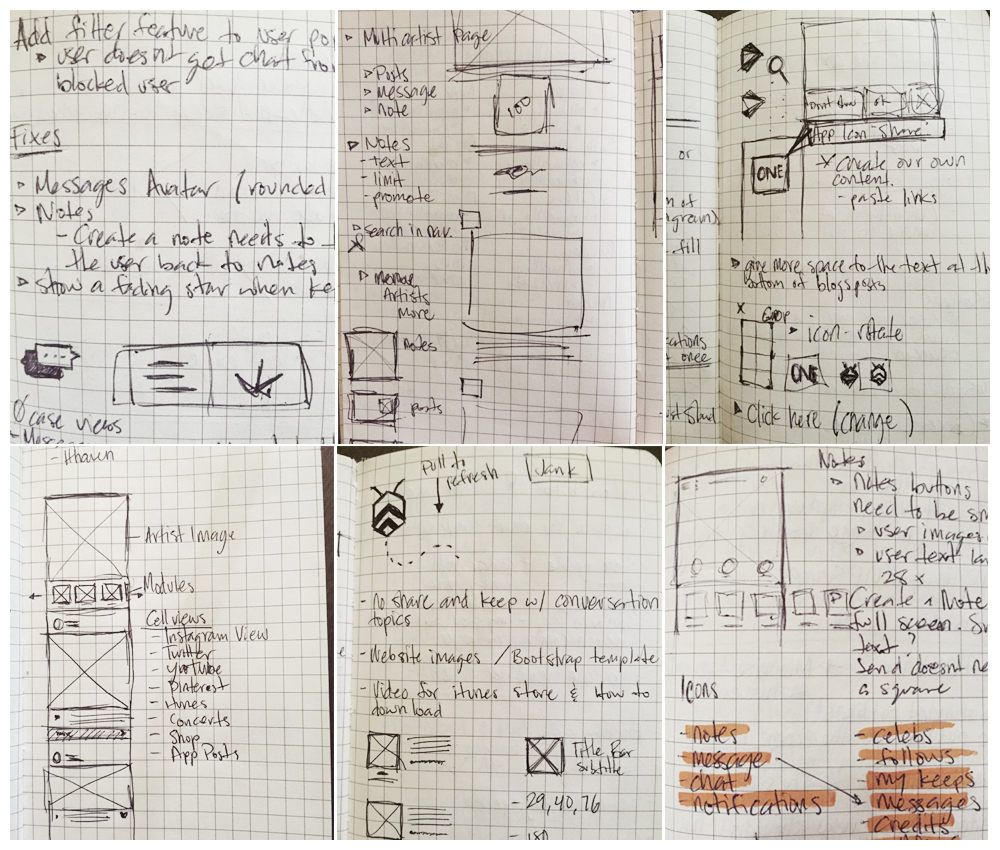 Add filter feature to user po
user doesn't get chat fro
blocked user
Fixes
Messages Avatar (rounded
Notes
- Create a note needs to
the user back to notes
Show a fading star when ke
case views
Multi artist Page
Posts
Message
note
100
Notes
- text
- limit
- promote
Search in nav.
Message
Artists
More
Notes
posts
or
fill
Dont Show
ok
X
App Icon "Share"
ONE
* Create our own
content.
- paste links
give more space to the text at th
bottom of blogsposts
X Crop
icon-rotate
ONE
Click here (change)
Artist Image
Modules
Cell views
- Instagram View
- Twitter
- YouTube
- Pinterest
- itunes
- Concerts
- Shop
- App Posts
Pull to
refresh
Jank
- No share and keep w/ conversation
topics
- Website images / Bootstrap template
- Video for itunes store & How to
download
Title Bar
subtitle
- 29, 40, 76
- 180
Notes
Notes buttons
need to be sm
user images
user text
28 x
Create a Note
full screen.
text?
Send doesnt ne
a square
Icons
- notes
- Message
- chat
- notifications
- celebs
- follows
- my keeps
- messages
- credits